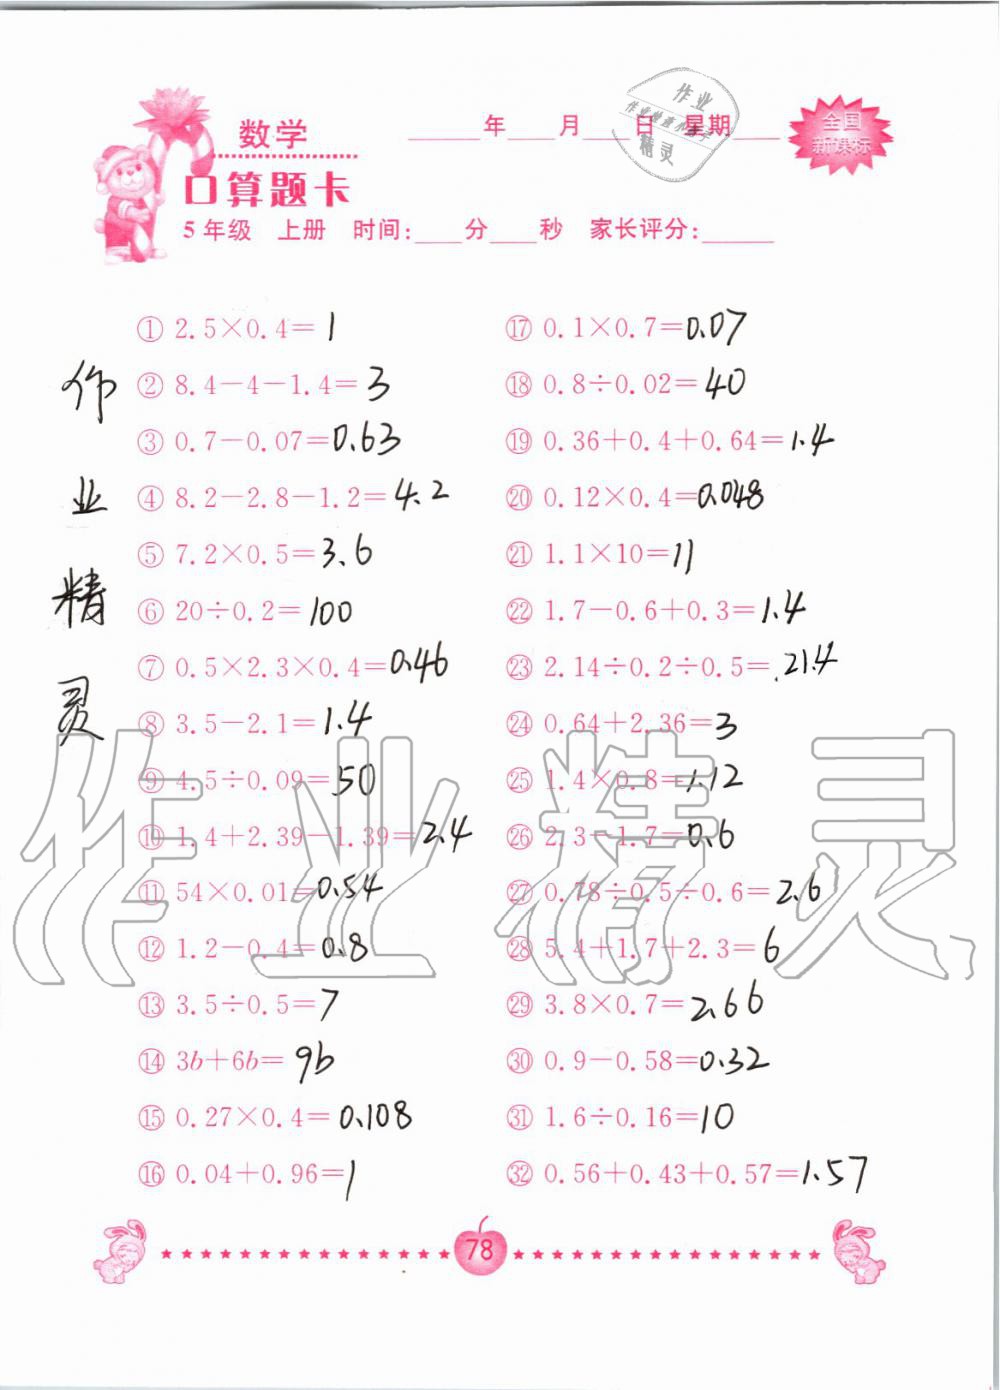 数学
____年____月____日 星期____
全国
新课标
作业
作业检查小助手
精灵
口算题卡
5年级 上册 时间:____分____秒 家长评分:______
① 2.5×0.4=1
② 8.4-4-1.4=3
③ 0.7-0.07=0.63
④ 8.2-2.8-1.2=4.2
⑤ 7.2×0.5=3.6
⑥ 20÷0.2=100
⑦ 0.5×2.3×0.4=0.46
⑧ 3.5-2.1=1.4
⑨ 4.5÷0.09=50
⑩ 1.4+2.39-1.39=2.4
⑪ 54×0.01=0.54
⑫ 1.2-0.4=0.8
⑬ 3.5÷0.5=7
⑭ 3b+6b=9b
⑮ 0.27×0.4=0.108
⑯ 0.04+0.96=1
⑰ 0.1×0.7=0.07
⑱ 0.8÷0.02=40
⑲ 0.36+0.4+0.64=1.4
⑳ 0.12×0.4=0.048
㉑ 1.1×10=11
㉒ 1.7-0.6+0.3=1.4
㉓ 2.14÷0.2÷0.5=21.4
㉔ 0.64+2.36=3
㉕ 1.4×0.8=1.12
㉖ 2.3-1.7=0.6
㉗ 0.78÷0.5÷0.6=2.6
㉘ 5.4+1.7+2.3=6
㉙ 3.8×0.7=2.66
㉚ 0.9-0.58=0.32
㉛ 1.6÷0.16=10
㉜ 0.56+0.43+0.57=1.57
作
业
精
灵
作业精灵
78